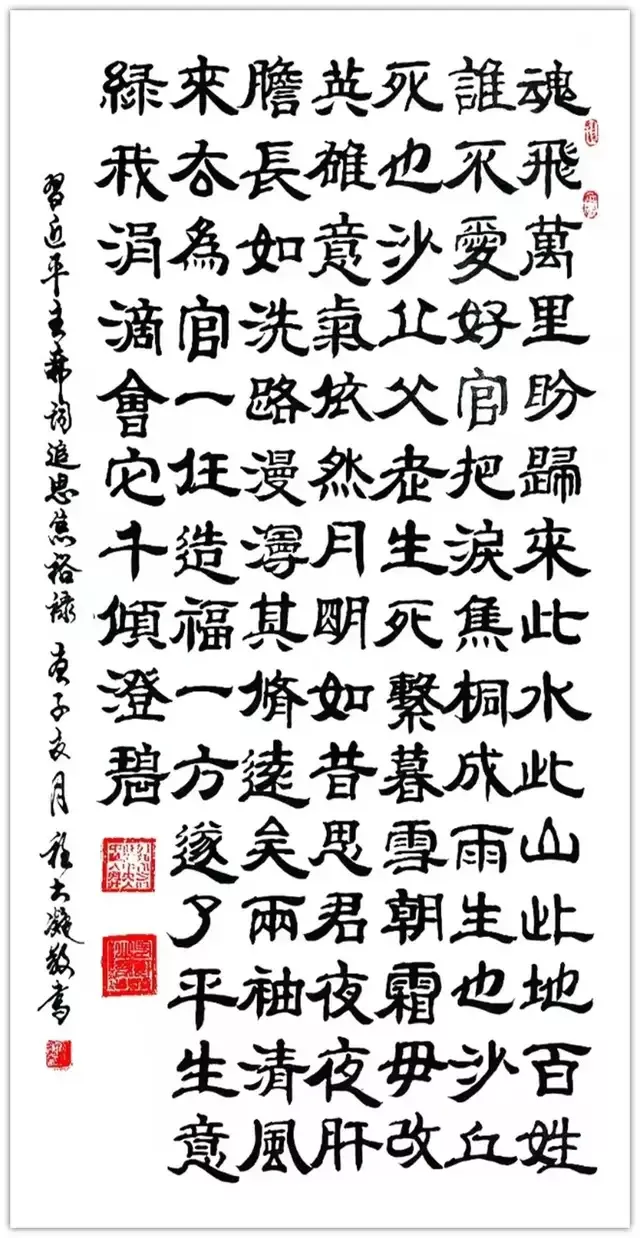 魂飛萬里盼歸來此水此山此地百姓
誰不愛好官把淚焦桐成雨生也沙丘
死也沙丘父老生死繫暮雪朝霜毋改
英雄意氣依然月明如昔思君夜夜肝
膽長如洗路漫漫其脩遠矣兩袖清風
來去為官一任造福一方遂了平生意
綠我涓滴會它千傾澄碧
習近平主席詞追思焦裕祿 庚子夏月 大凝敬書